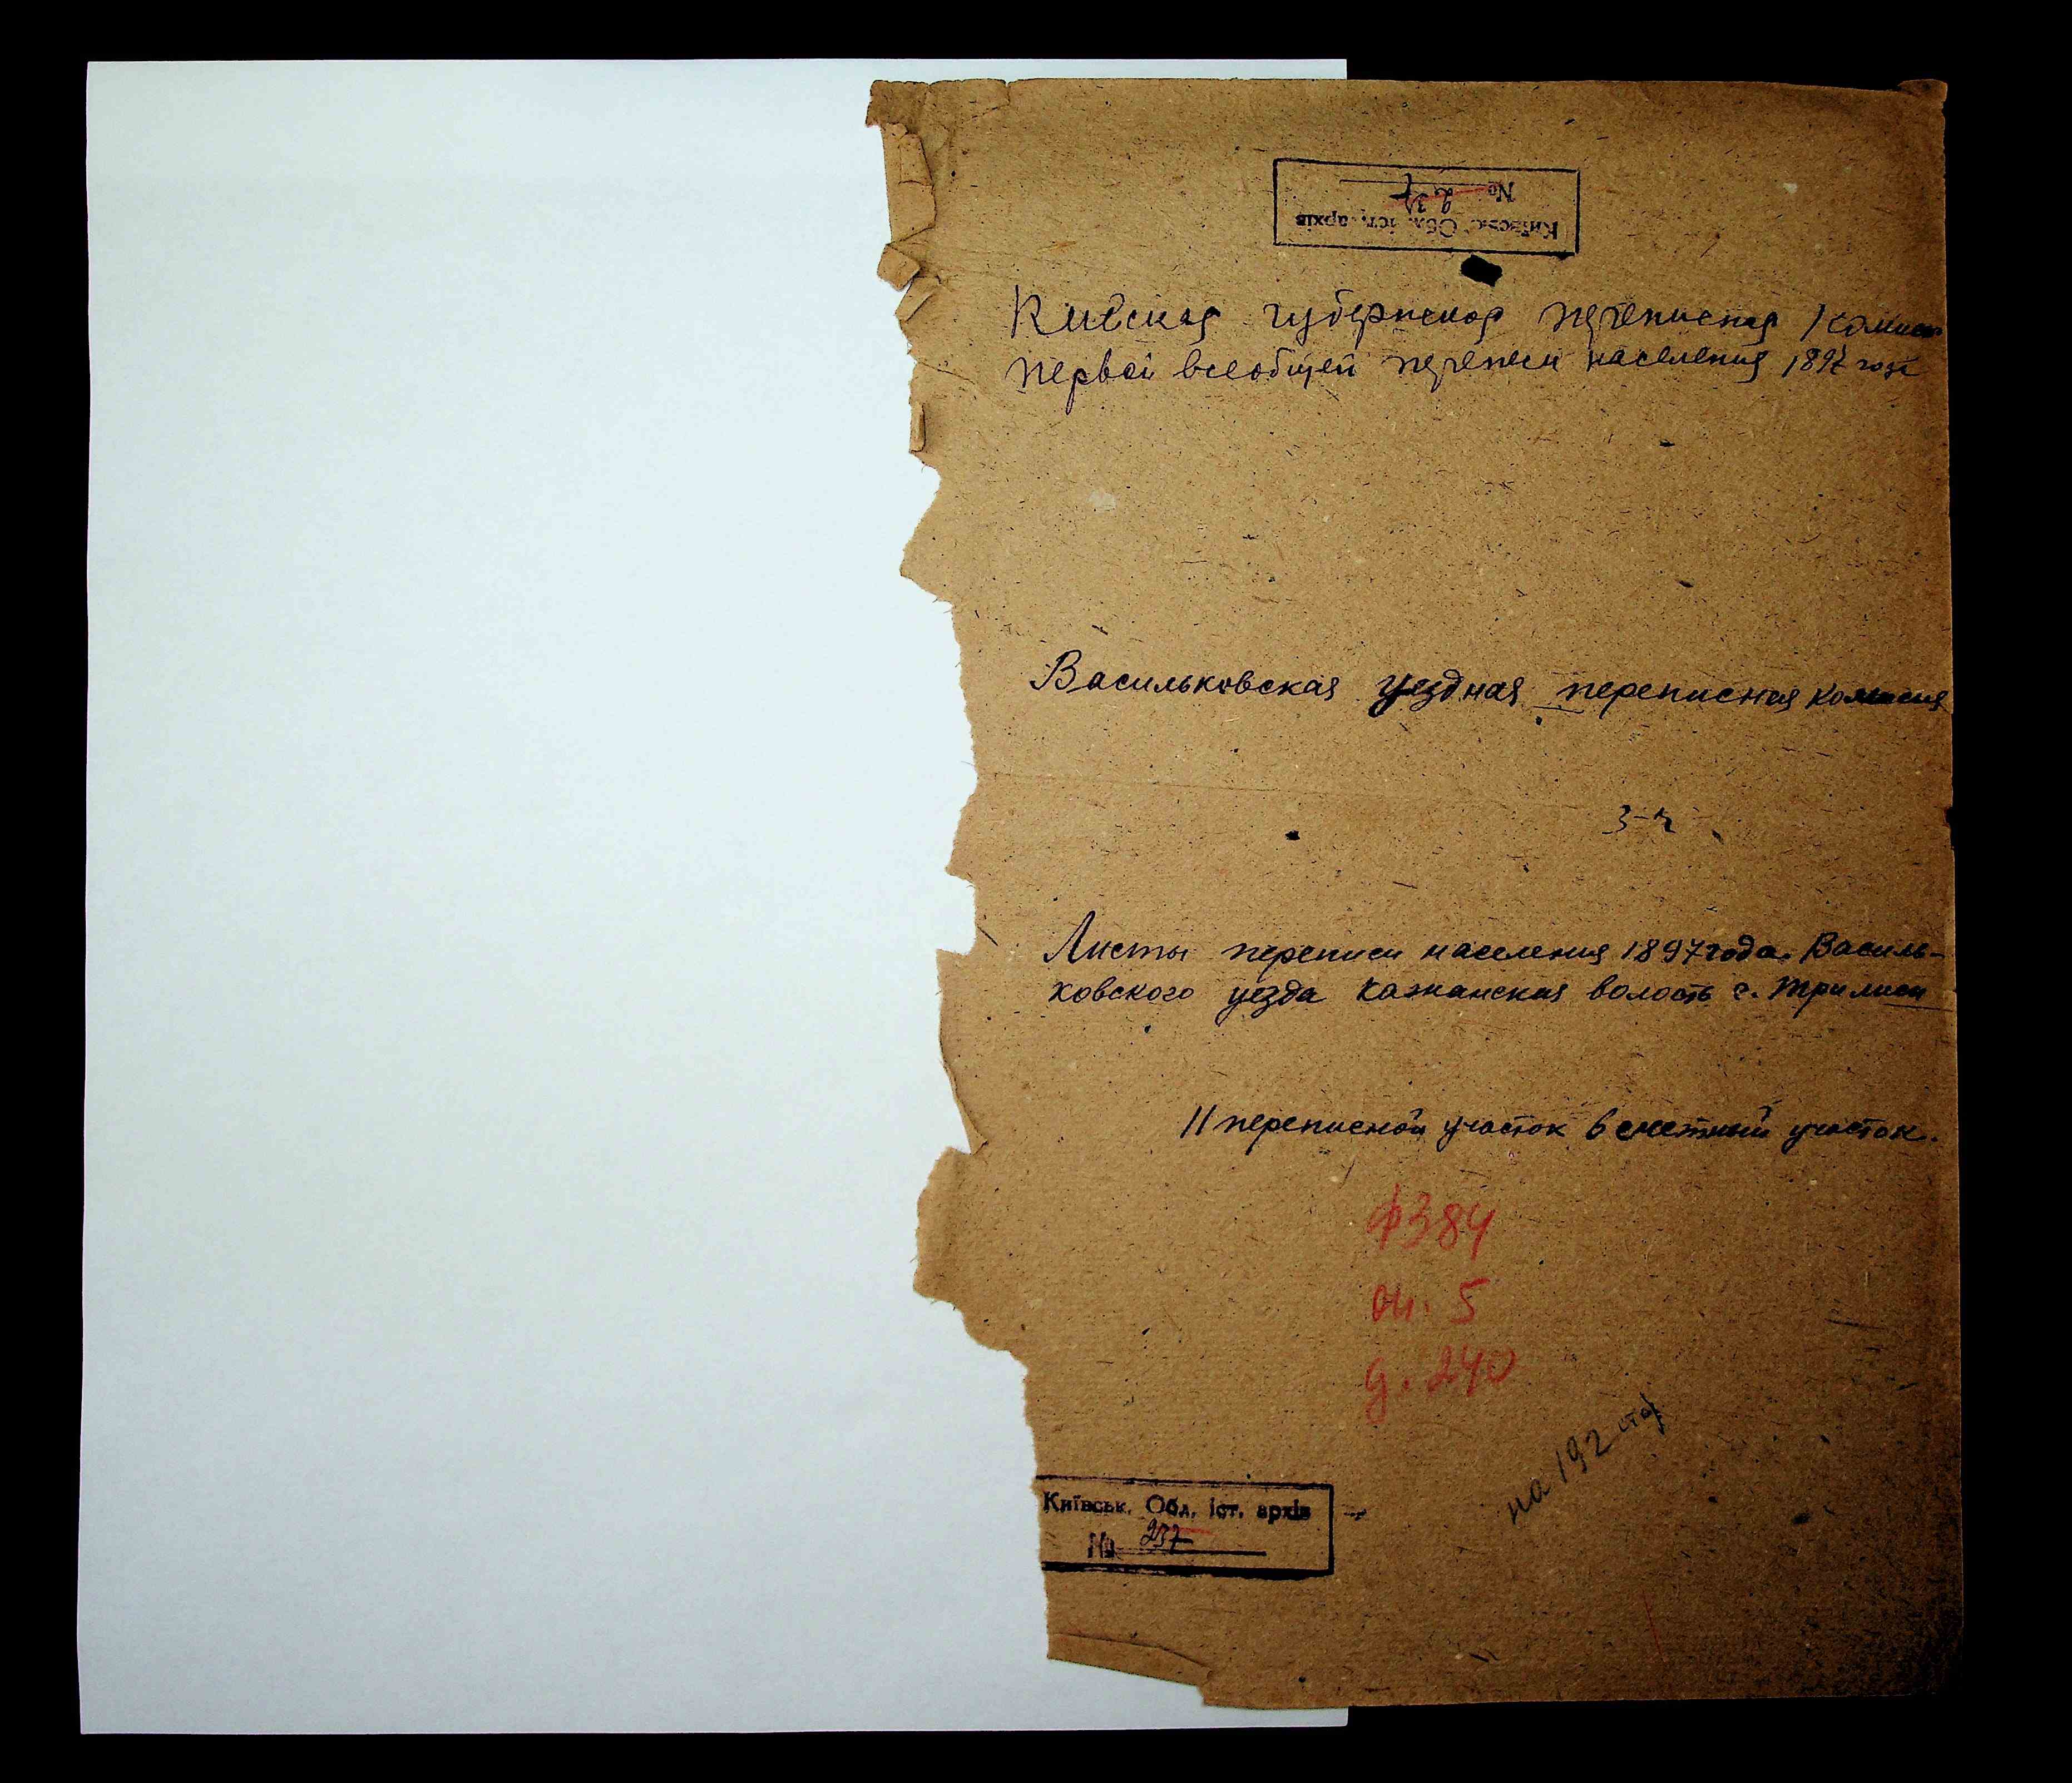 Київськ. Обл. іст. архів
№ 237
Киевская губернская переписная комисс
первой всеобщей переписи населения 1897 года
Васильковская уездная переписная комисия
Листы переписи населения 1897 года. Василь-
ковского уезда Кажанская волость с. Трилиси
11 переписной участок 6 счетный участок.
ф 384
оп. 5
д. 240
на 192
Київськ. Обл. іст. архів
№ 237